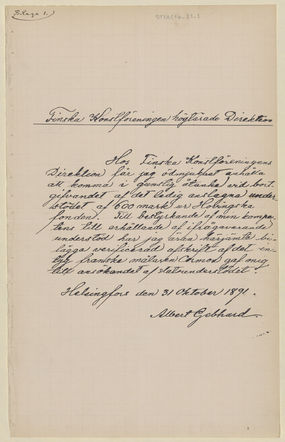 Bilaga 1.
Finska Konstföreningen höglärade Direktion
Hos Finska Konstföreningens
Direktion får jag ödmjukast anhålla
att komma i gunstig åtanke vid bort
gifvandet af det ledig anslagna under
stödet af 600 mark ur Hoving'ska
fonden. Till bestyrkande af min kompe
tens till erhållande af ifrågavarande
understöd har jag äran härjämte bi
lägga verificerad afskrift af det in
tyg franske målaren Cormon gaf mig
till ansökandet af statsunderstödet
Helsingfors den 31 Oktober 1891.
Albert Gebhard.